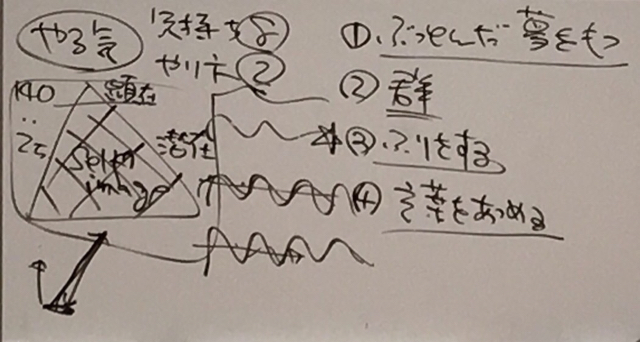 やる気
気持ち ⑧
やり方 ②
140 顕在
:
25
潜在
Self image
① ぶっとんだ夢をもつ
② 群
③ ふりをする
④ 言葉をあつめる